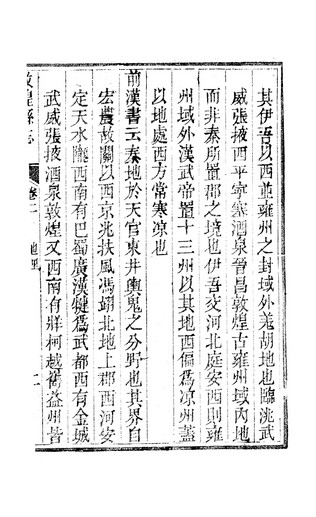 其伊吾以西並雍州之封域外羌胡地也臨洮武
威張掖西平寧寒酒泉晉昌敦煌古雍州域內地
而非秦所置郡之境也伊吾交河北庭安西則雍
州域外漢武帝置十三州以其地西偏爲凉州蓋
以地處西方常寒凉也
前漢書云秦地於天官東井輿鬼之分野也其界自
宏農故關以西京兆扶風馮翊北地上郡西河安
定天水隴西南有巴蜀廣漢犍爲武都西有金城
武威張掖酒泉敦煌又西南有牂柯越巂益州皆
敦煌縣志
卷二
地理
二